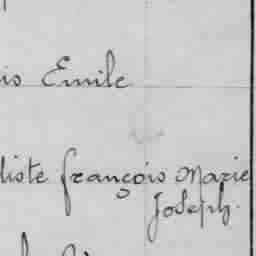 is Emile
liste françois Marie
Joseph.